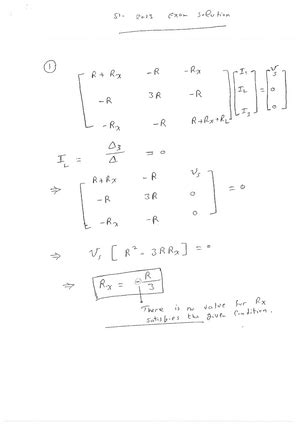 Exam Solution
①
R + Rx   -R   -Rx   I1   Vs
-R   3R   -R   I2 = 0
-Rx   -R   R+Rx+RL   I3   0
IL = Δ3 / Δ = 0
⇒ R+Rx   -R   Vs
-R   3R   0   = 0
-Rx   -R   0
⇒ Vs [ R² - 3RRx ] = 0
⇒ Rx = R / 3
There is no value for Rx
satisfies the given condition.